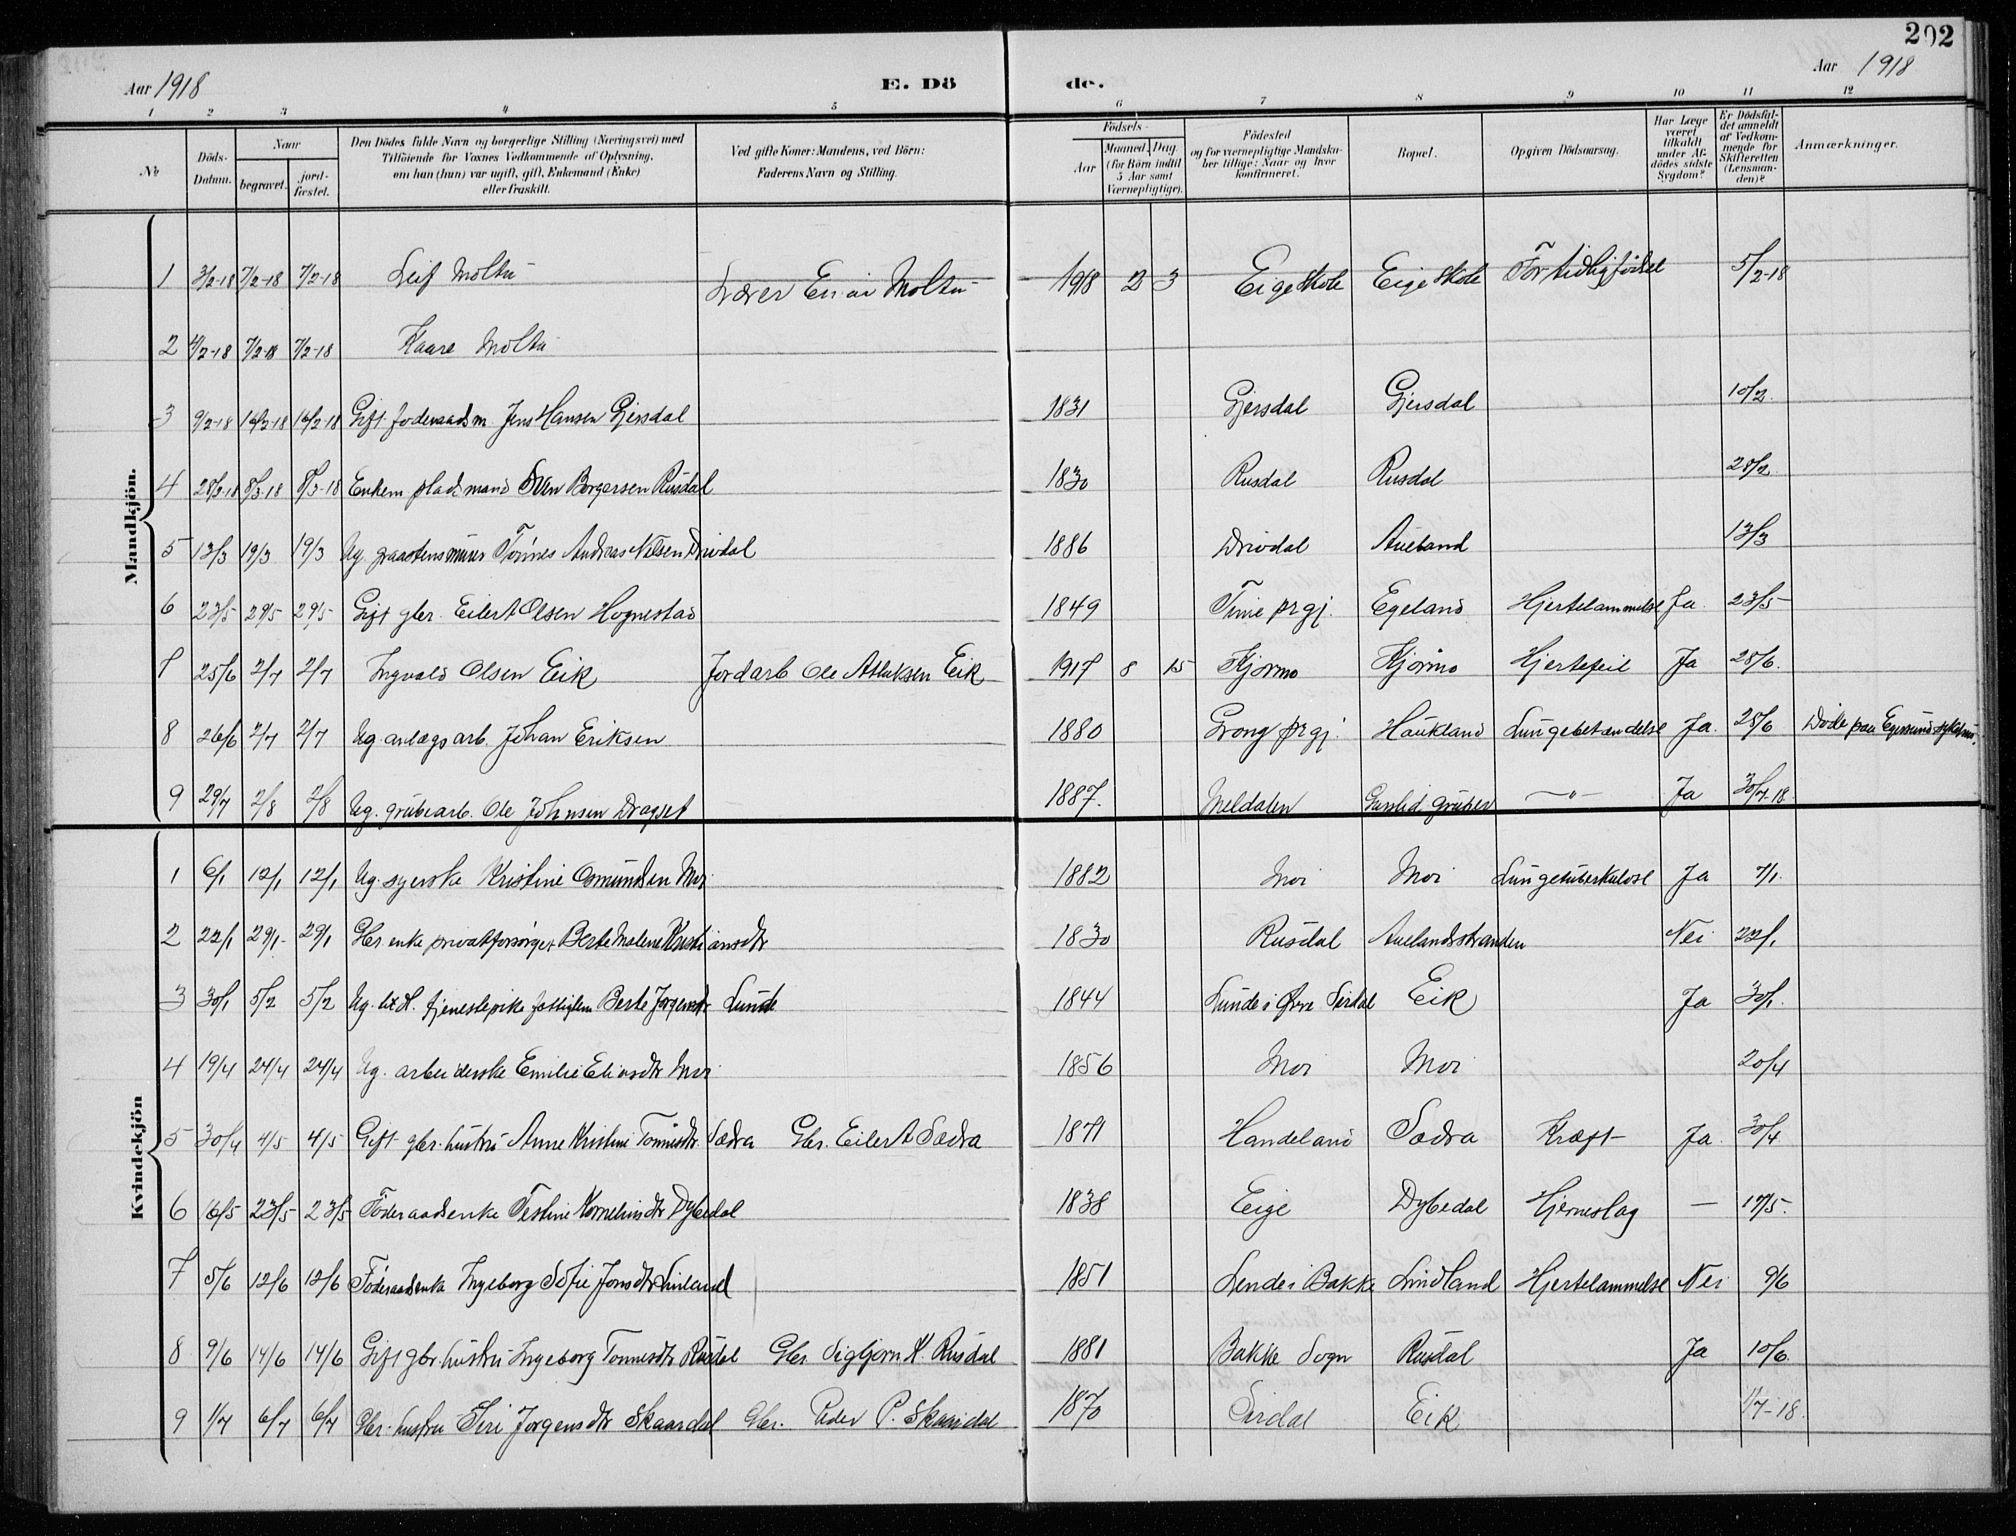 202
Aar 1918 E. Dö de. Aar 1918
1 2 3 4 5 6 7 8 9 10 11 12
No
Döds-Datum.
Naar
begravet.
jord-fæstet.
Den Dödes fulde Navn og borgerlige Stilling (Næringsvei) med
Tilföiende for Voxnes Vedkommende af Oplysning,
om han (hun) var ugift, gift, Enkemand (Enke)
eller fraskilt.
Ved gifte Koner: Mandens, ved Börn:
Faderens Navn og Stilling.
Födsels-
Aar
Maaned. Dag.
(for Börn indtil
5 Aar samt
Værnepligtige).
Födested
og for værnepligtige Mandska-
ber tillige: Naar og hvor
konfirmeret.
Bopæl.
Opgiven Dödsaarsag.
Har Læge
været
tilkaldt
under Af-
dödes sidste
Sygdom?
Er Dödsfal-
det anmeldt
af Vedkom-
mende for
Skifteretten
(Lensman-
den)?
Anmærkninger.
Mandkjön.
1 3/2-18 7/2-18 7/2-18 Leif Moltu Lærer Moltu 1918 2 3 Eige skole Eige skole For tidlig fødsel 5/2-18
2 4/2-18 7/2-18 7/2-18 Kaare Moltu
3 9/2-18 16/2-18 16/2-18 Gift føderaadsm. Jens Hansen Gjersdal 1831 Gjersdal Gjersdal 10/2
4 28/2-18 8/3-18 8/3-18 Enkem pladsmand Sven Borgersen Rusdal 1830 Rusdal Rusdal 28/2
5 13/3 19/3 19/3 Ug. graastensmurer Tønnes Andreas Nilsen Drivdal 1886 Drivdal Aueland 13/3
6 23/5 29/5 29/5 Gift gbr. Eilert Olsen Hognestad 1849 Time prgj. Egeland Hjertelammelse Ja 23/5
7 25/6 2/7 2/7 Ingvald Olsen Eik Jordarb Ole Atlaksen Eik 1917 8 15 Kjørmo Kjørmo Hjertefeil Ja 28/6
8 26/6 2/7 2/7 Ug anlægsarb. Johan Eriksen 1880 Grong prgj. Haukland Lungebetændelse Ja 28/6 Døde paa Egersund sykehus.
9 29/7 2/8 2/8 Ug. grubearb. Ole Johnsen Dragset 1887. Meldalen gruber —"— Ja 30/7-18
Kvindekjön
1 6/1 12/1 12/1 Ug. syerske Kristine Osmundsen Moi 1882 Moi Moi Lungetuberkulose Ja 7/1
2 22/1 29/1 29/1 Gbr. enke privatforsørget Berte Malene Kristiansdtr 1830 Rusdal Auelandsstranden Nei 22/1
3 30/1 5/2 5/2 Ug. tjenestepike fattiglem Berte Jørgensdtr Lunde 1844 Lunde i Øvre Sirdal Eik Ja 30/1
4 19/4 24/4 24/4 Ug. arbeiderske Emilie Eliasdtr Moi 1856 Moi Moi 20/4
5 30/4 4/5 4/5 Gift gbr. hustru Anne Kristine Tønnesdtr. Sædra Gbr. Eilert Sædra 1871 Handeland Sædra Kræft Ja 30/4
6 16/5 23/5 23/5 Føderaadsenke Testine Kornelius dtr Dybedal 1838 Eige Dybedal Hjerneslag — 17/5.
7 5/6 12/6 12/6 Føderaadsenke Ingeborg Sofie Jonsdtr Linland 1851 Lende i Bakke Lindland Hjertelammelse Nei 9/6
8 9/6 14/6 14/6 Gift gbr. hustru Ingeborg Tonnesdtr Rusdal Gbr. Sigbjørn K. Rusdal 1881 Bakke Sogn Rusdal Ja 10/6.
9 1/7 6/7 6/7 Gbr. hustru Siri Jørgensdtr Skaardal Gbr. Peder P. Skaardal 1870 Sirdal Eik 1/7-18.